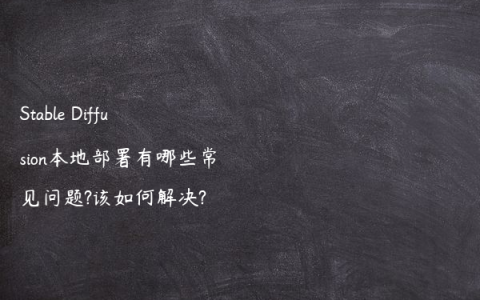 Stable Diffu
sion本地部署有哪些常
见问题?该如何解决?